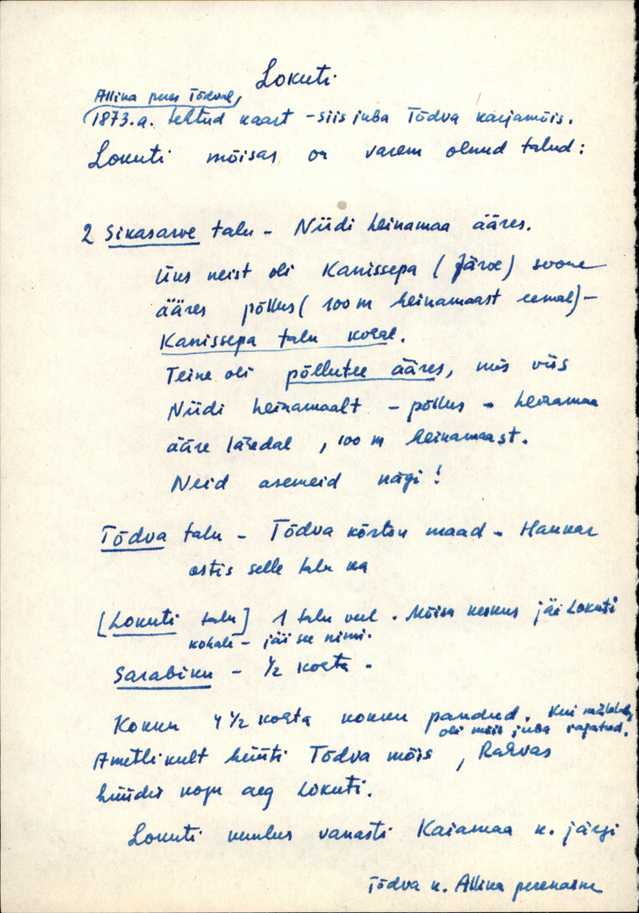 Lokuti
Allika peres Tõdval,
1873.a. tehtud kaart - siis juba Tõdva karjamõis.
Lokuti mõisas on varem olnud talud:
2 Sikasarve talu - Niidi heinamaa ääres.
Üks neist oli Kanissepa (Järve) soone
ääres põllus (100 m heinamaast eemal) -
Kanissepa talu kohal.
Teine oli põllutee ääres, mis viis
Niidi heinamaalt - põllus - heinamaa
ääre lähedal, 100 m heinamaast.
Neid asemeid nägi!
Tõdva talu - Tõdva kõrtsu maad - Hannar
ostis selle talu ka
[Lokuti talu] 1 talu veel. Mõisa keskus jäi Lokuti
kohale - jäi see nimi.
Sarabiku - 1/2 kohta.
Kokku 4 1/2 kohta kokku pandud. Kui mäletab,
oli mõis juba rajatud.
Ametlikult hüüti Tõdva mõis, Rahvas
hüüdis kogu aeg Lokuti.
Lokuti kuulus vanasti Kaiamaa k. järgi
Tõdva k. Allika perenaine